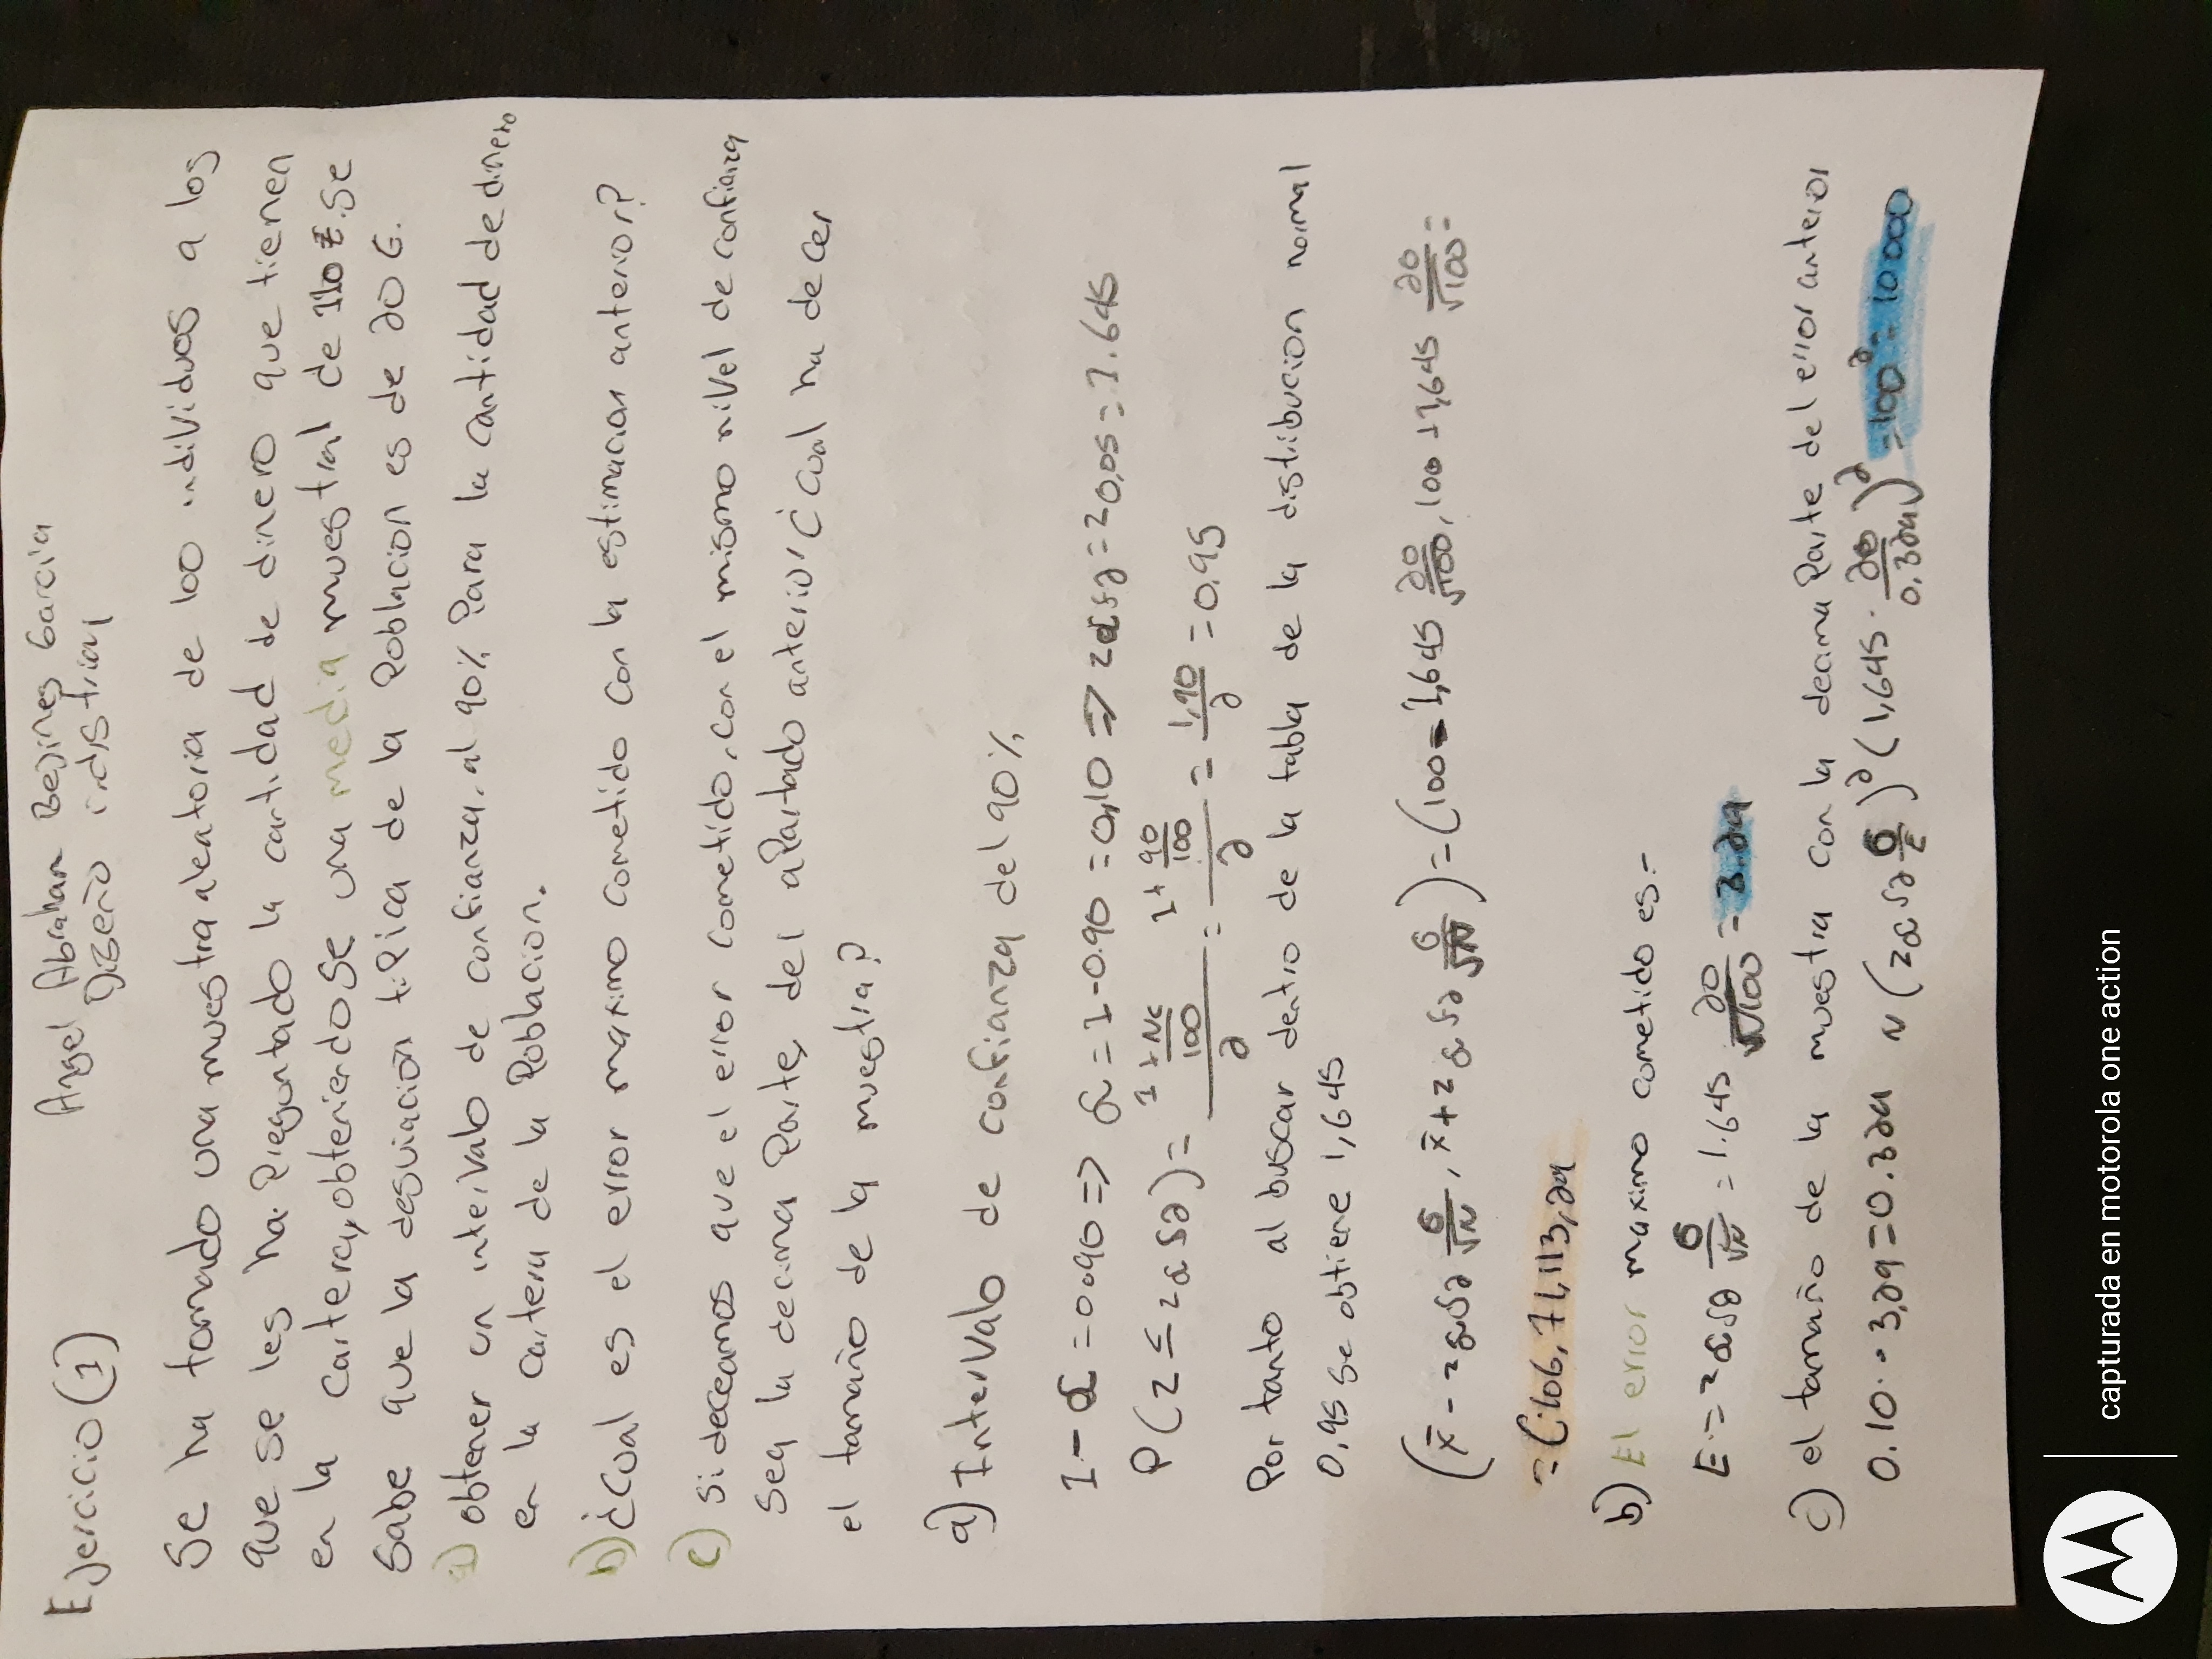 Ejercicio (1)
Angel Abraham Bejines Garcia
Diseño industrial
Se ha tomado una muestra aleatoria de 100 individuos a los
que se les ha Preguntado la cantidad de dinero que tienen
en la cartera, obteniendose una media muestral de 110 €. Se
sabe que la desviación tipica de la Poblacion es de 20 €.
a) obtener un intervalo de confianza, al 90% Para la cantidad de dinero
en la cartera de la Poblacion.
b) ¿Cual es el error maximo cometido con la estimacion anterior?
c) Si deceamos que el error cometido, con el mismo nivel de confianza
sea la decima Parte, del aPartado anterior ¿cual ha de cer
el tamaño de la muestra?
a) Intervalo de confianza del 90%
1 - α = 0.90 => α = 1 - 0.90 = 0,10 => zα/2 = z0,05 = 1.645
P(z ≤ zα/2) = (1 + Nc/100)/2 = (1 + 90/100)/2 = 1,90/2 = 0.95
Por tanto al buscar dentro de la tabla de la distribucion normal
0,95 se obtiene 1,645
(x̄ - zα/2 σ/√N, x̄ + zα/2 σ/√N) = (100 - 1,645 20/√100, 100 + 1,645 20/√100 =
= (106,71,113,29
b) El error maximo cometido es:-
E = zα/2 σ/√N = 1.645 20/√100 = 3.29
c) el tamaño de la muestra con la decima Parte del error anterior
0.10 · 3,29 = 0.329 N (zα/2 σ/E)² (1,645 · 20/0.329)² = 100² = 10 000
capturada en motorola one action